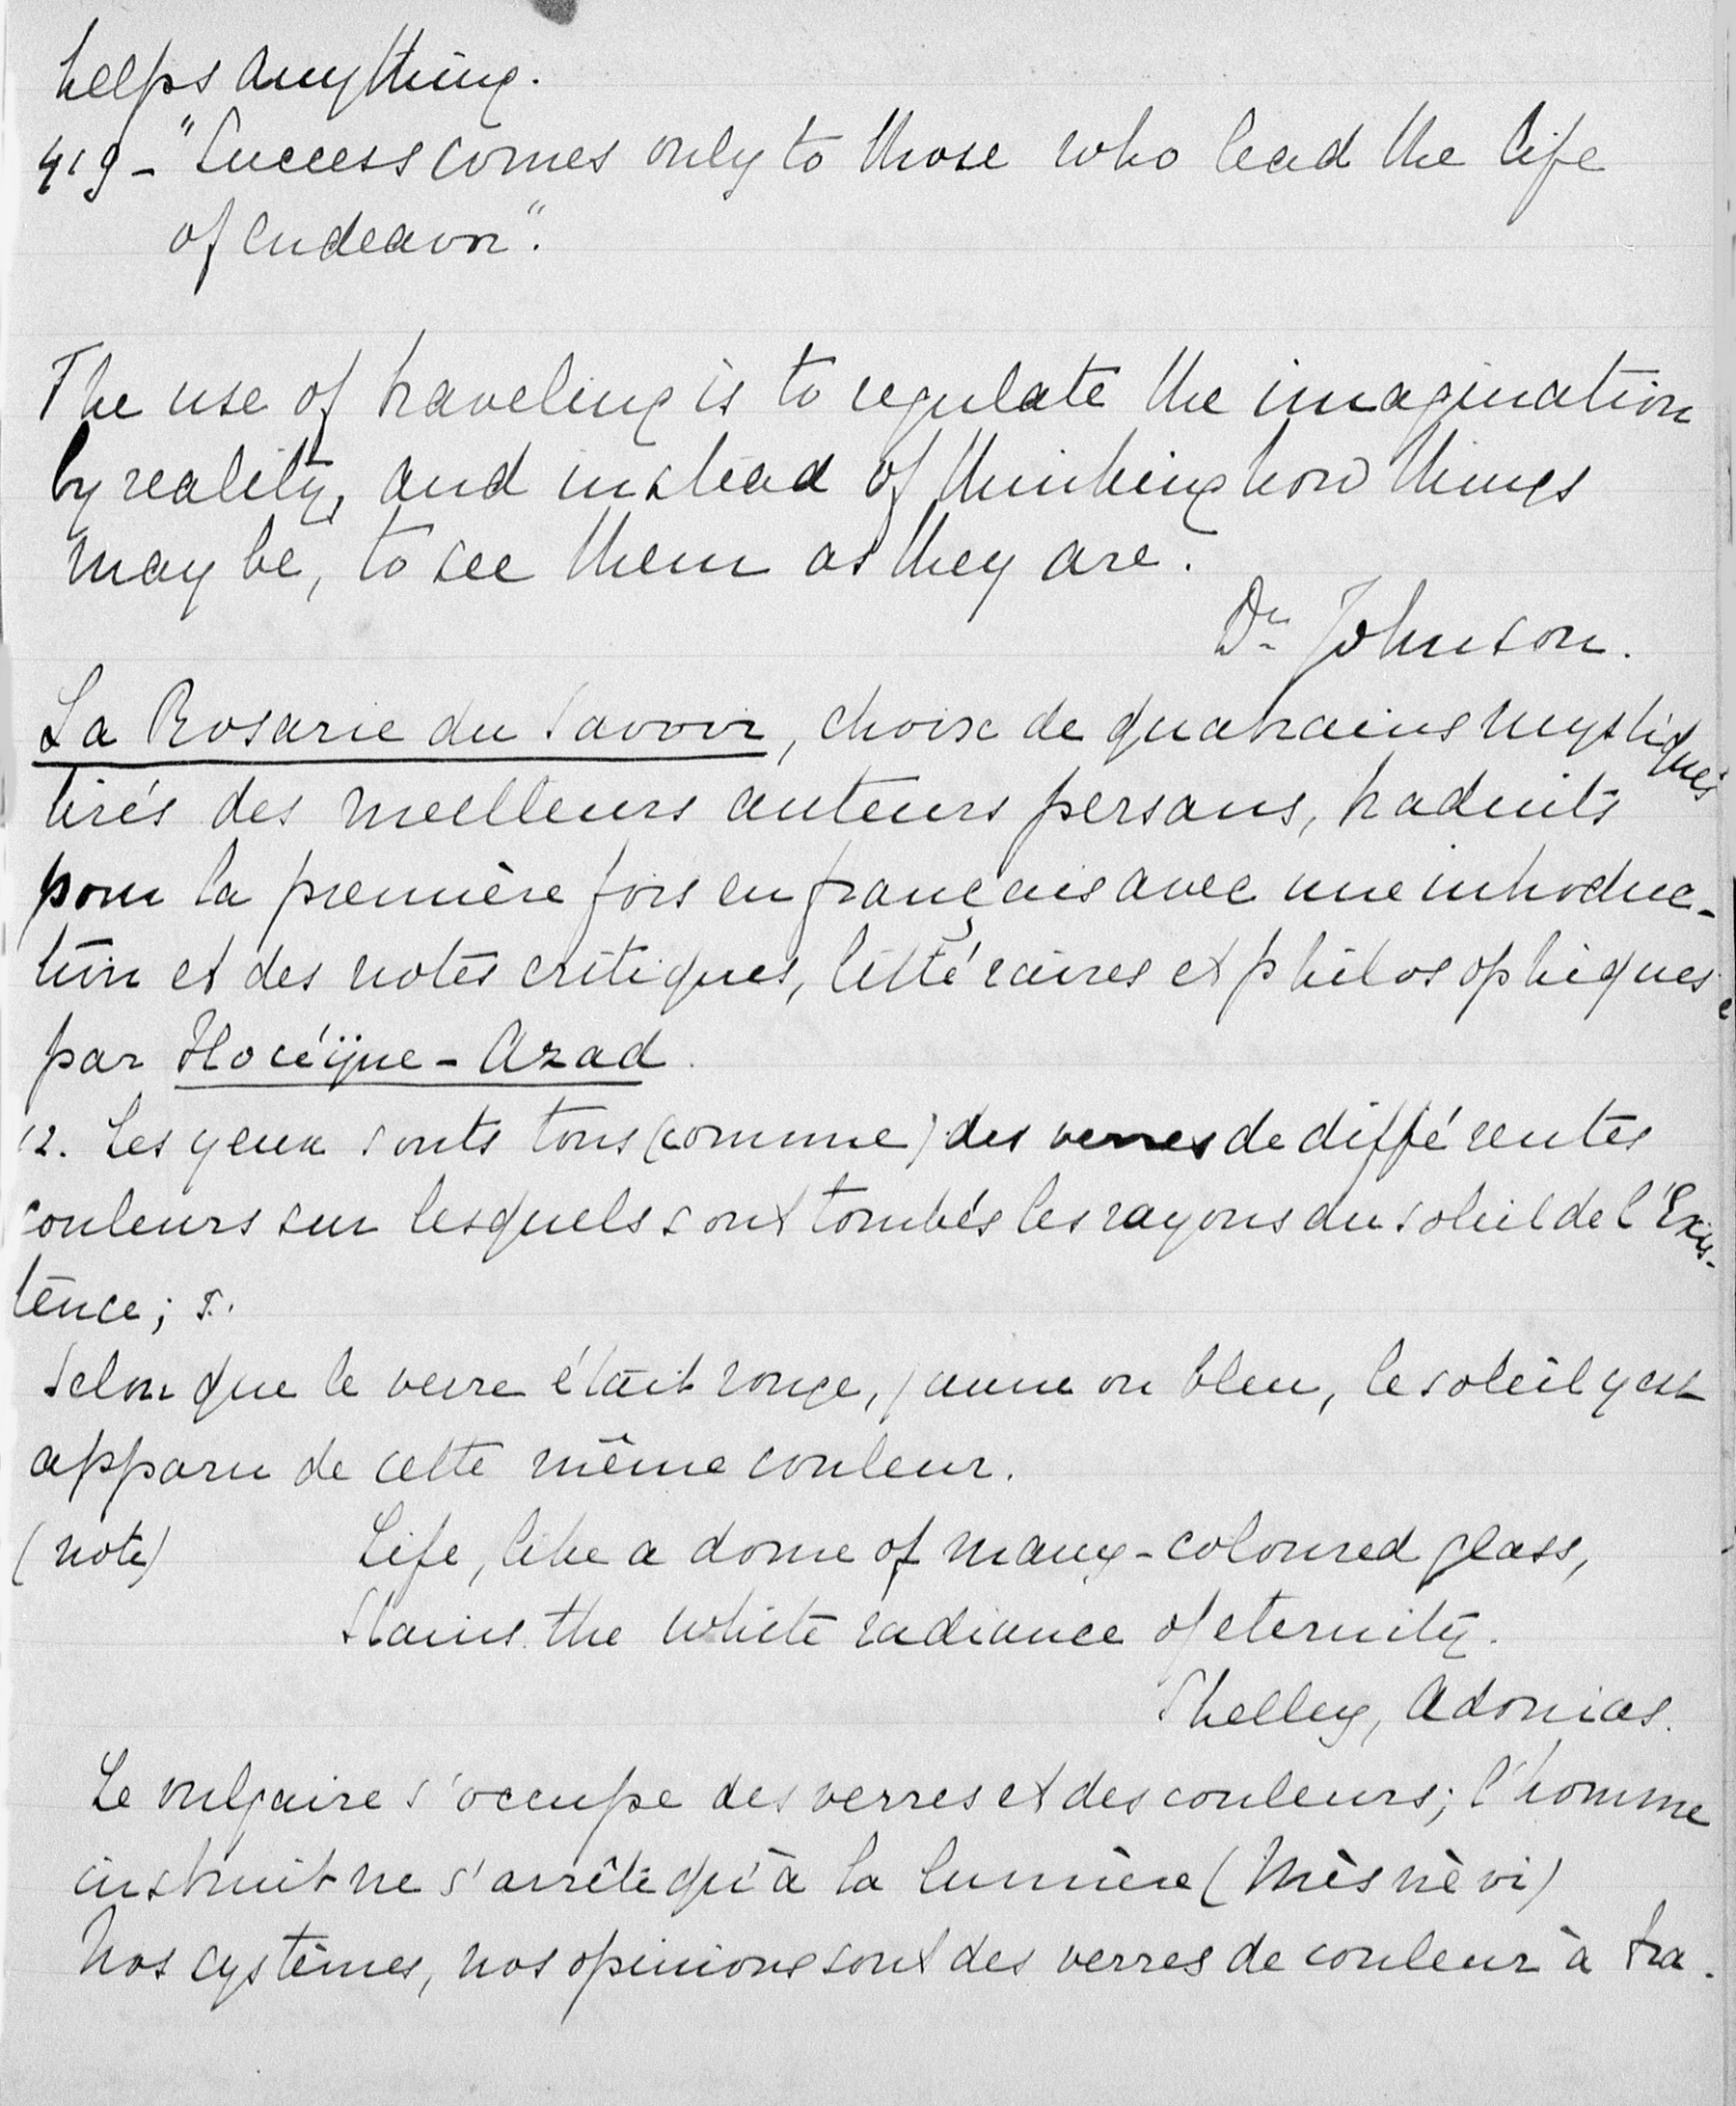 helps anything.
419 - "Success comes only to those who lead the life
of endeavor".
The use of traveling is to regulate the imagination
by reality, and instead of thinking how things
may be, to see them as they are.
Dr Johnson.
La Rosarie du Savoir, choix de quatrains mystiques
tirés des meilleurs auteurs persans, traduits
pour la première fois en français avec une introduc-
tion et des notes critiques, littéraires et philosophiques
par Hocéÿne-Azad.
12. Les yeux sonts tous (comme) des verres de différentes
couleurs sur lesquels sont tombés les rayons du soleil de l'Exis-
tence;
Selon que le verre était rouge, jaune ou bleu, le soleil y est
apparu de cette même couleur.
(note) Life, like a dome of many-coloured glass,
Stains the white radiance of eternity.
Shelley, Adonias.
Le vulgaire s'occupe des verres et des couleurs; l'homme
instruit ne s'arrête qu'à la lumière (Mèsnèvi)
Nos cystèmes, nos opinions sont des verres de couleur à tra-